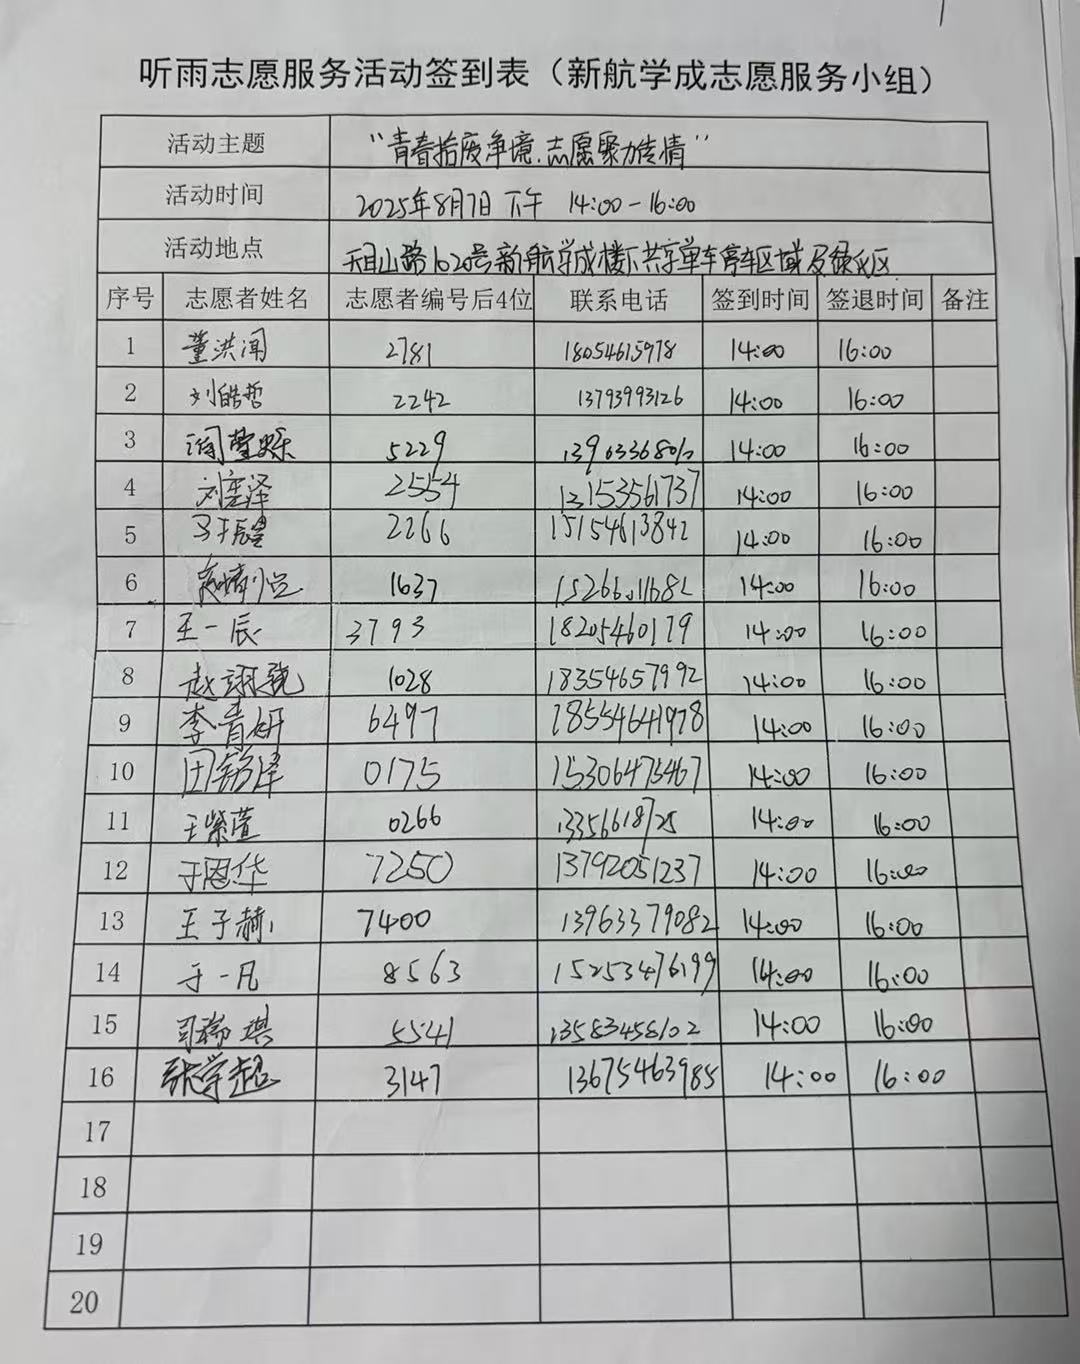 听雨志愿服务活动签到表（新航学成志愿服务小组）
活动主题 “青春拾废净境.志愿聚力传情”
活动时间 2025年8月7日 下午 14:00-16:00
活动地点 天目山路1020号新航学成楼下共享单车停车区域及绿化区
序号 志愿者姓名 志愿者编号后4位 联系电话 签到时间 签退时间 备注
1 董洪闻 2781 18054615978 14:00 16:00
2 刘皓哲 2242 13793993126 14:00 16:00
3 5229 14:00 16:00
4 刘奕泽 2554 13153561737 14:00 16:00
5 2266 15154613842 14:00 16:00
6 1637 14:00 16:00
7 王一辰 3793 18205460179 14:00 16:00
8 1028 18354657992 14:00 16:00
9 李青妍 6497 18554641978 14:00 16:00
10 0175 15306475467 14:00 16:00
11 王紫萱 0266 14:00 16:00
12 于恩华 7250 13792051237 14:00 16:00
13 王子赫 7400 13963379082 14:00 16:00
14 于一凡 8563 15253476199 14:00 16:00
15 司瑞琪 5541 13583458102 14:00 16:00
16 张学超 3147 13675463985 14:00 16:00
17
18
19
20